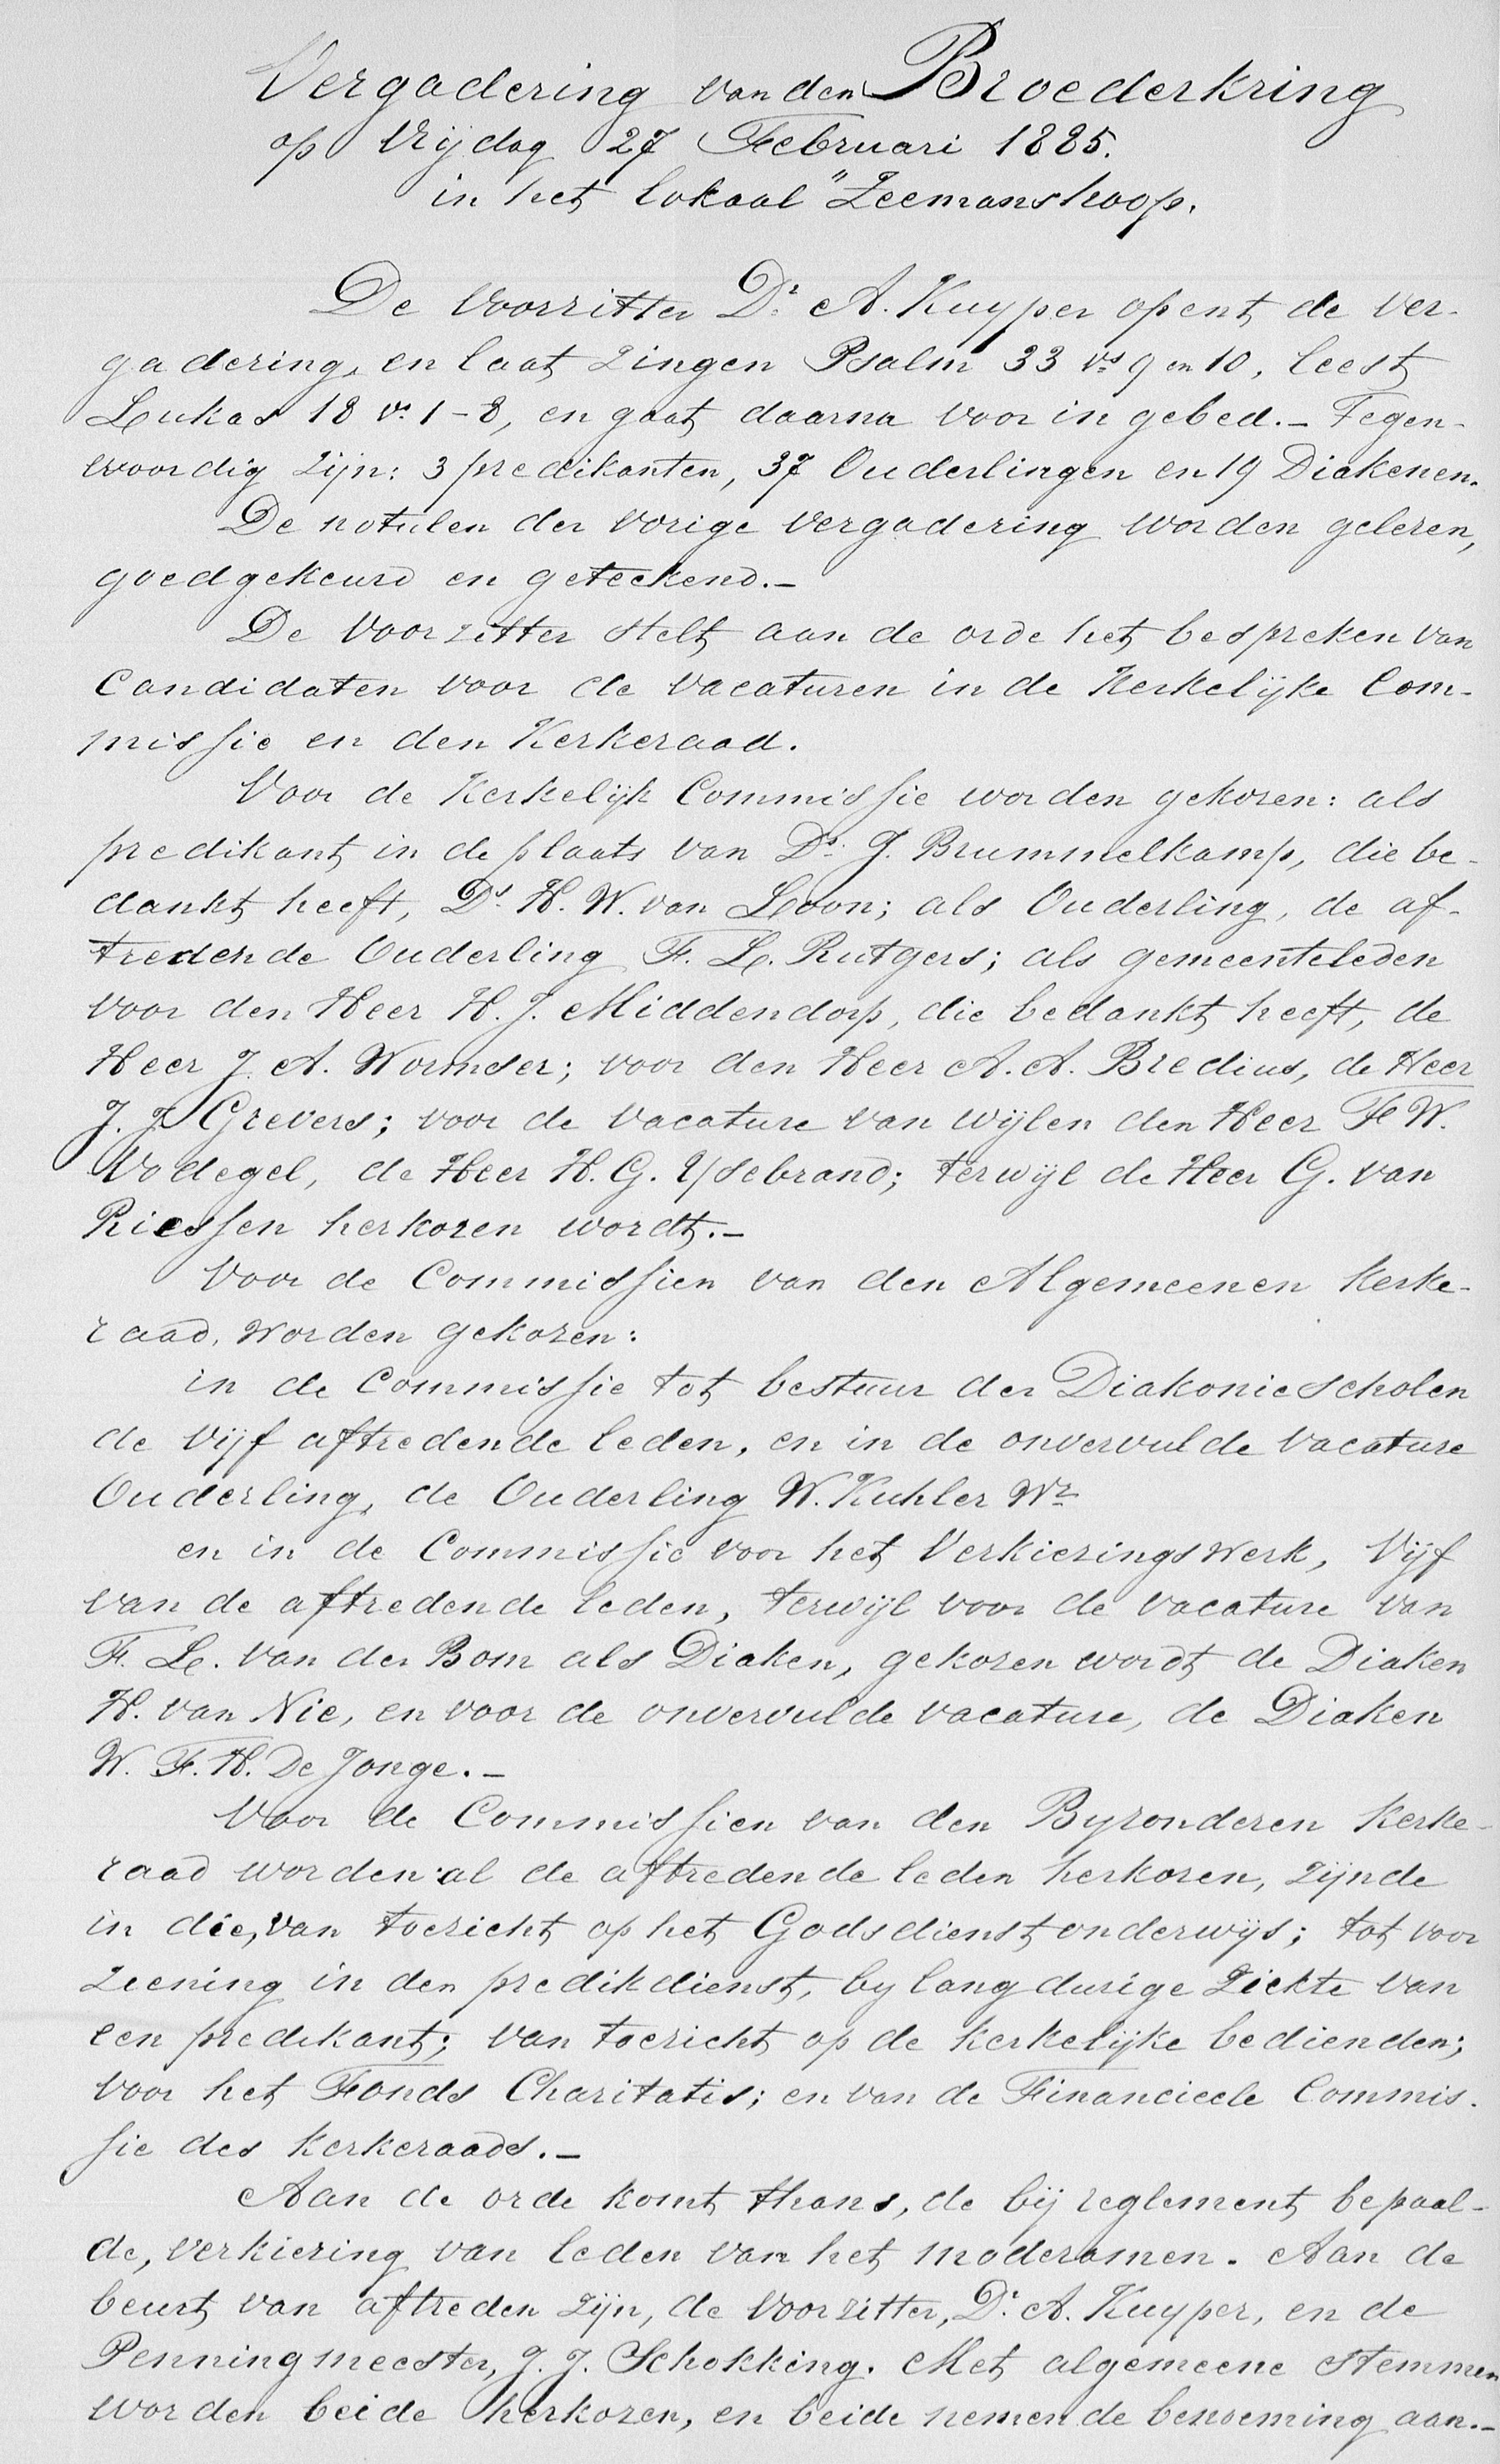 Vergadering van den Broederkring
op Vrijdag 27 Februari 1885.
in het lokaal "Zeemanshoop.
De Voorzitter Dr. A. Kuyper opent de ver-
gadering, en laat zingen Psalm 33 vs 9 en 10, leest
Lukas 18 vs 1-8, en gaat daarna voor in gebed. - Tegen-
woordig zijn: 3 predikanten, 37 Ouderlingen en 19 Diakenen.
De notulen der vorige vergadering worden gelezen,
goedgekeurd en geteekend. -
De Voorzitter stelt aan de orde het bespreken van
Candidaten voor de vacaturen in de Kerkelijke Com-
missie en den Kerkeraad.
Voor de Kerkelijk Commissie worden gekozen: als
predikant in de plaats van Ds. J. Brummelkamp, die be-
dankt heeft, Ds. H. W. van Loon; als Ouderling, de af-
tredende Ouderling F. L. Rutgers; als gemeenteleden
voor den Heer H. J. Middendorp, die bedankt heeft, de
Heer J. A. Wormser; voor den Heer A. A. Bredius, de Heer
J. J. Grevers; voor de vacature van wijlen den Heer F W.
Vodegel, de Heer H. G. IJsebrand; terwijl de Heer G. van
Riessen herkozen wordt. -
Voor de Commissien van den Algemeenen Kerke-
raad, worden gekozen:
in de Commissie tot bestuur der Diakonie scholen
de vijf aftredende leden, en in de onvervulde vacature
Ouderling, de Ouderling W. Kuhler Wz
en in de Commissie voor het Verkieringswerk, Vijf
van de aftredende leden, terwijl voor de vacature van
F. L. van der Bom als Diaken, gekozen wordt de Diaken
H. van Nie, en voor de onvervulde vacature, de Diaken
W. F. H. De Jonge. -
Voor de Commissien van den Byzonderen Kerke-
raad worden al de aftredende leden herkozen, zijnde
in die, van toezicht op het Godsdienstonderwijs; tot voor
ziening in den predikdienst, by langdurige ziekte van
een predikant; van toezicht op de kerkelijke bedienden;
voor het Fonds Charitatis; en van de Financieele Commis-
sie des Kerkeraads. -
Aan de orde komt thans, de bij reglement bepaal-
de, verkiezing van leden van het moderamen. Aan de
beurt van aftreden zijn, de Voorzitter, Dr. A. Kuyper, en de
Penningmeester, J. J. Schokking. Met algemeene stemmen
worden beide herkozen, en beide nemen de benoeming aan. -